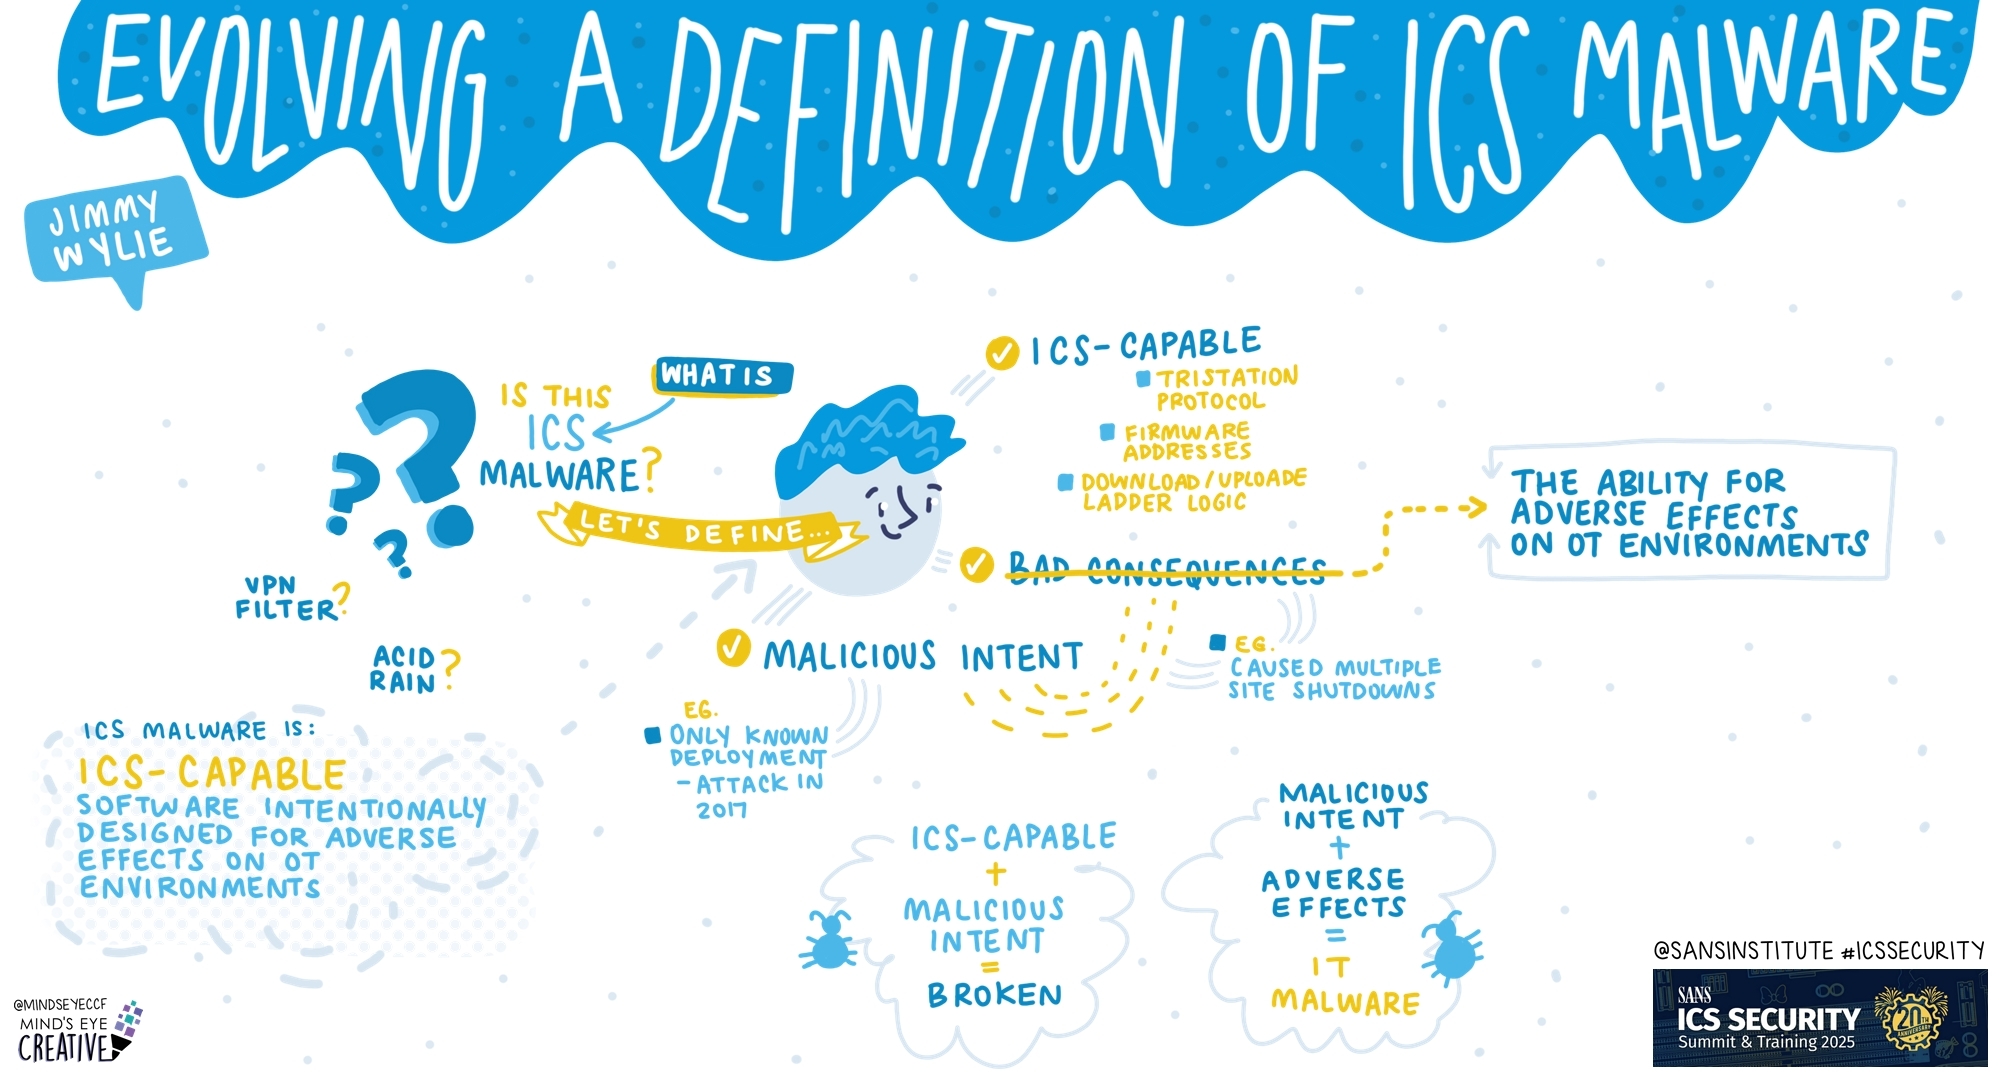 EVOLVING A DEFINITION OF ICS MALWARE
JIMMY
WYLIE
WHAT IS
IS THIS
ICS
MALWARE?
LET'S DEFINE...
VPN
FILTER?
ACID
RAIN?
ICS MALWARE IS:
ICS-CAPABLE
SOFTWARE INTENTIONALLY
DESIGNED FOR ADVERSE
EFFECTS ON OT
ENVIRONMENTS
ICS-CAPABLE
TRISTATION
PROTOCOL
FIRMWARE
ADDRESSES
DOWNLOAD/UPLOADE
LADDER LOGIC
BAD CONSEQUENCES
THE ABILITY FOR
ADVERSE EFFECTS
ON OT ENVIRONMENTS
EG.
CAUSED MULTIPLE
SITE SHUTDOWNS
MALICIOUS INTENT
EG.
ONLY KNOWN
DEPLOYMENT
- ATTACK IN
2017
ICS-CAPABLE
+
MALICIOUS
INTENT
=
BROKEN
MALICIOUS
INTENT
+
ADVERSE
EFFECTS
=
IT
MALWARE
@MINDSEYECCF
MIND'S EYE
CREATIVE
@SANSINSTITUTE #ICSSECURITY
SANS
ICS SECURITY
Summit & Training 2025
20TH
ANNIVERSARY